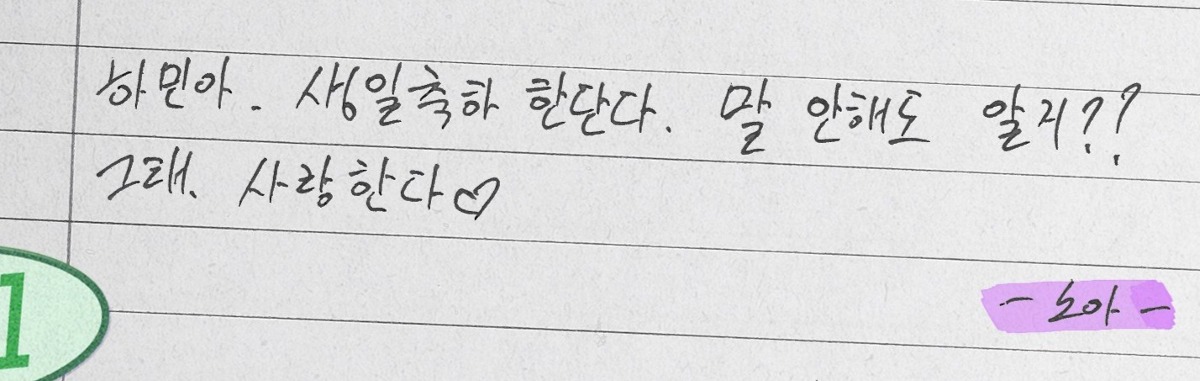 하민아. 생일축하 한단다. 말 안해도 알지??
그래. 사랑한다♡
1
- 노아 -